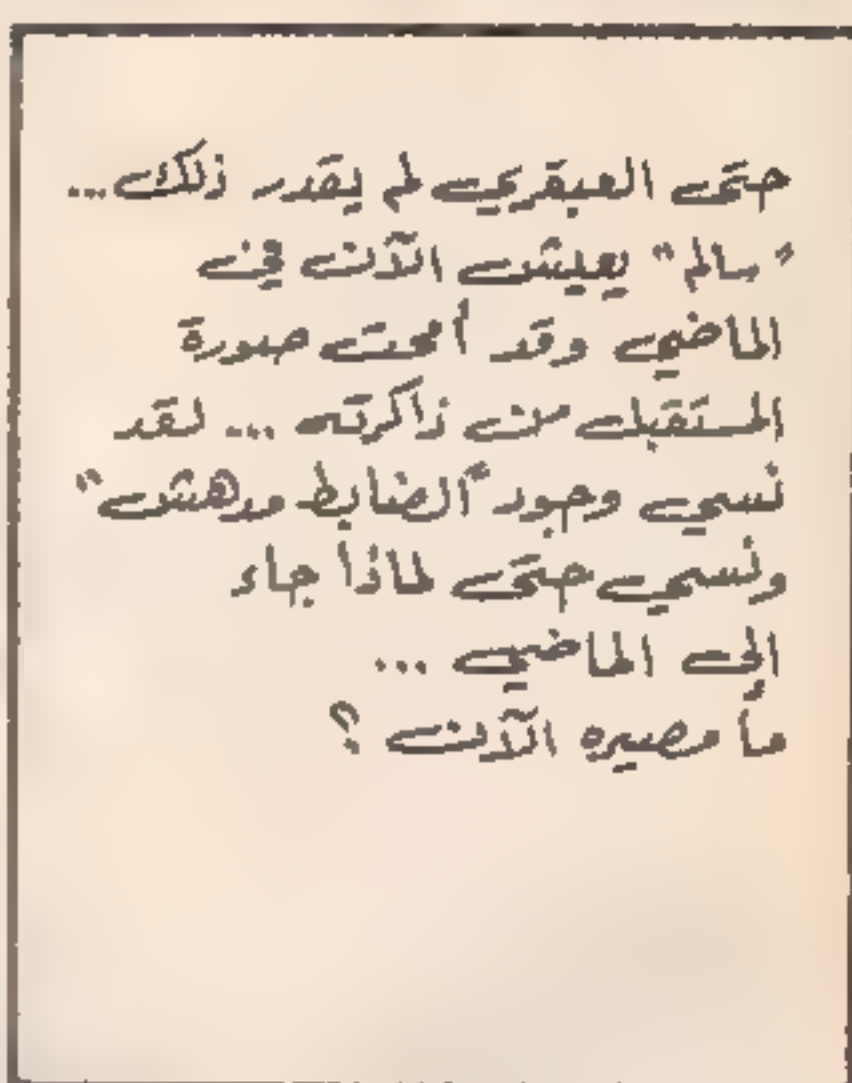 حتى العبقري لم يقدر ذلك...
"سالم" يعيش الآن في
الماضي وقد أمحت صورة
المستقبل من ذاكرته ... لقد
نسي وجود "الضابط مدهش"
ونسي حتى لماذا جاء
إلى الماضي ...
ما مصيره الآن ؟